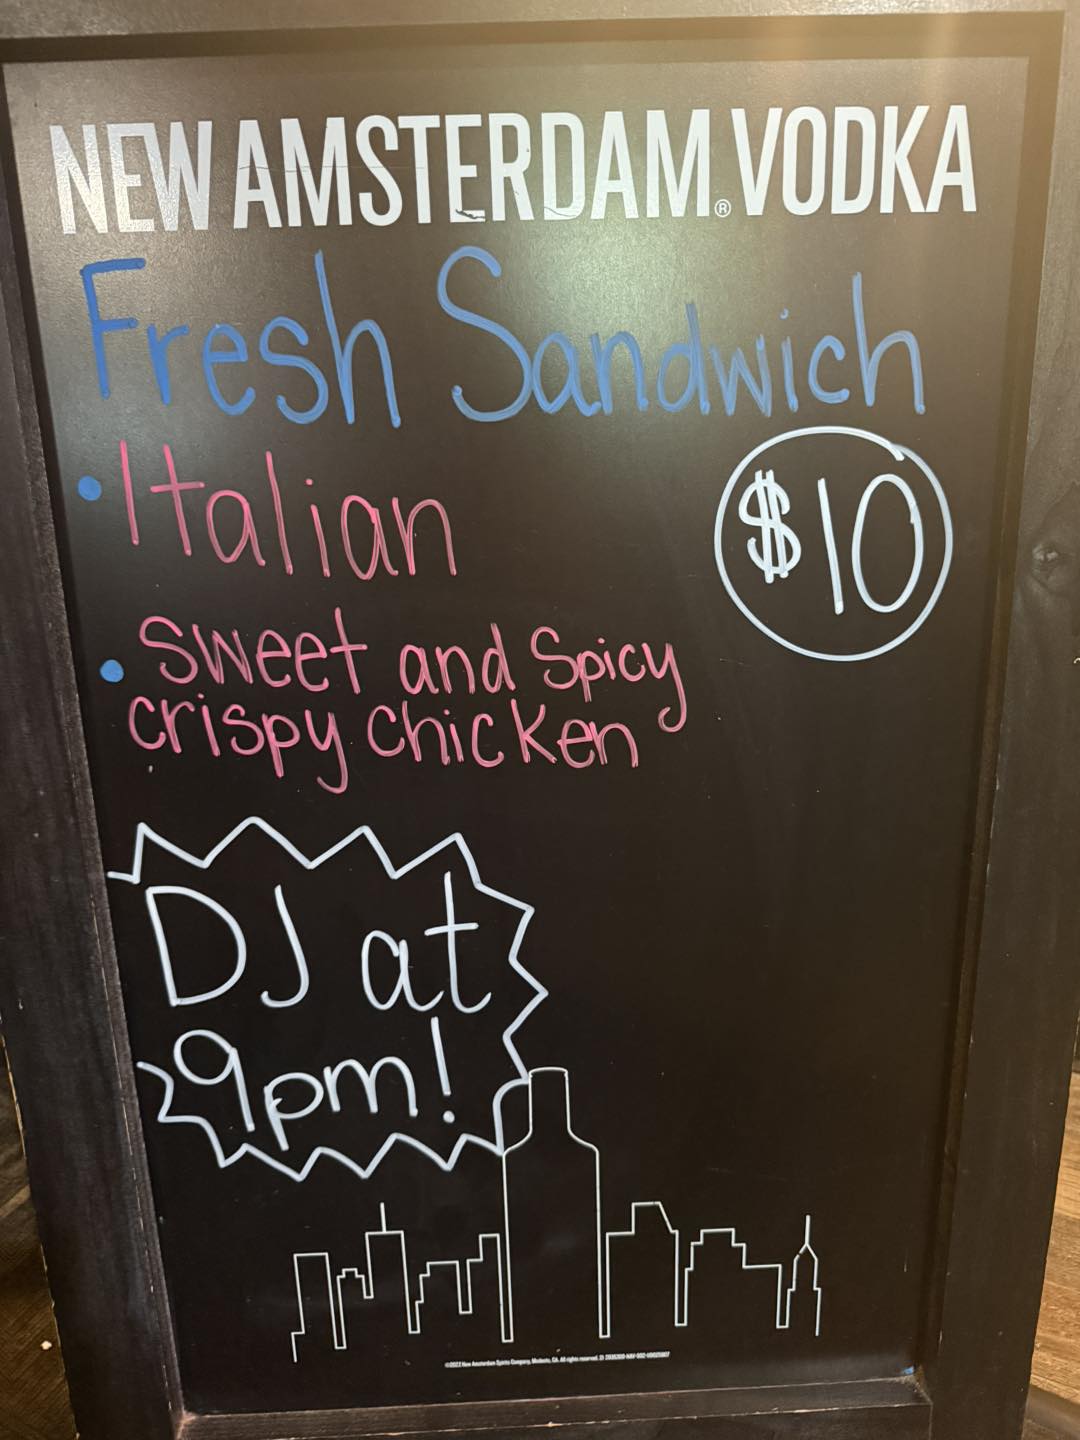 NEW AMSTERDAM® VODKA
Fresh Sandwich
• Italian
$10
• Sweet and Spicy
crispy chicken
DJ at
9pm!
©2022 New Amsterdam Spirits Company, Modesto, CA. All rights reserved.